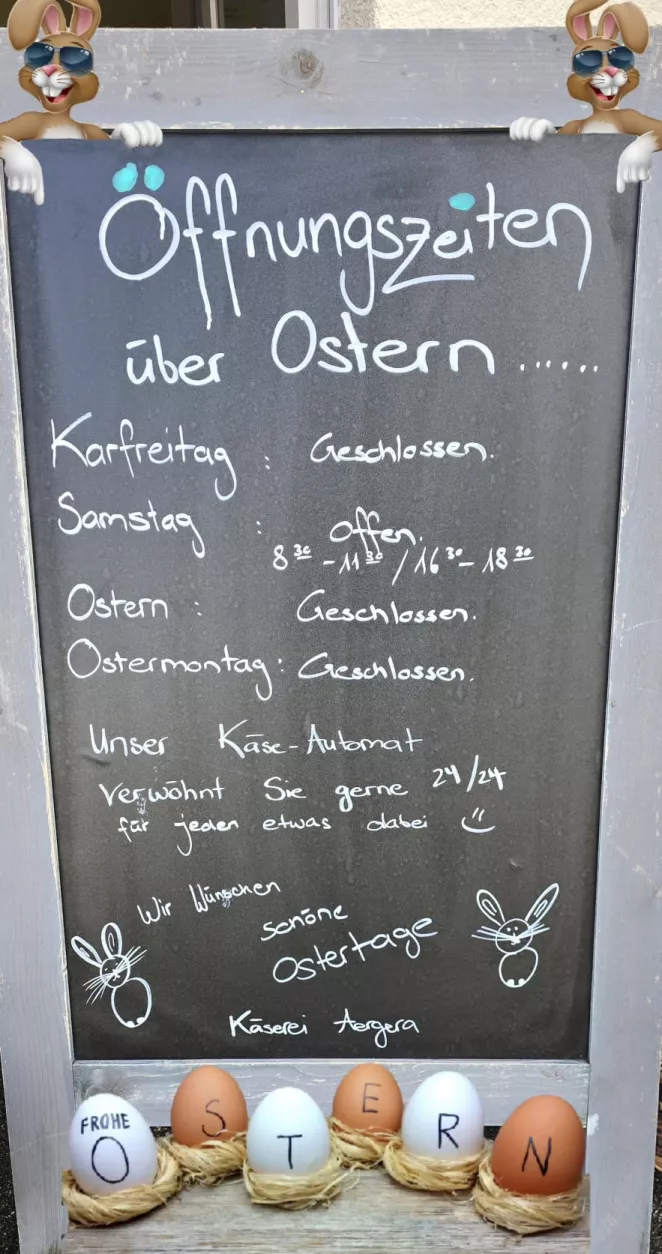 Öffnungszeiten
über Ostern ......
Karfreitag : Geschlossen.
Samstag : Offen.
8 30 - 11 30 / 16 30 - 18 30
Ostern : Geschlossen.
Ostermontag : Geschlossen.
Unser Käse-Automat
verwöhnt Sie gerne 24/24
für jeden etwas dabei
Wir Wünschen
schöne
Ostertage
Käserei Aergera
FROHE
O S T E R N